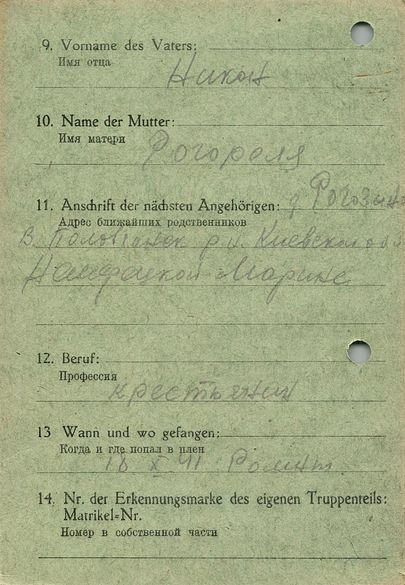 9. Vorname des Vaters:
Имя отца
Никон
10. Name der Mutter:
Имя матери
11. Anschrift der nächsten Angehörigen:
Адрес ближайших родственников
р.н. Киевской об
Марине
12. Beruf:
Профессия
крестьянин
13 Wann und wo gefangen:
Когда и где попал в плен
18 X 41
14. Nr. der Erkennungsmarke des eigenen Truppenteils:
Matrikel=Nr.
Номер в собственной части